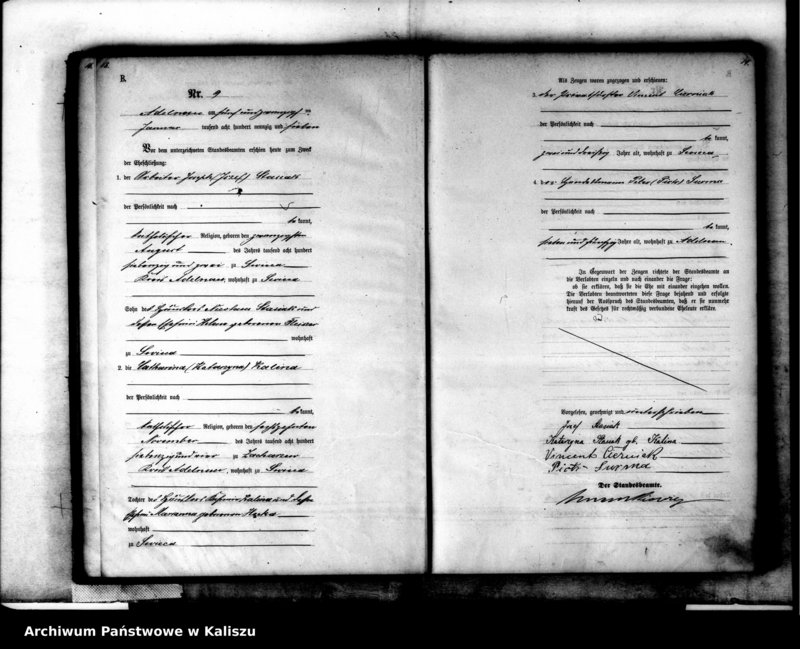 B.
Nr. 9
Adelnau am fünf und zwanzigsten
Januar tausend acht hundert neunzig und sieben
Vor dem unterzeichneten Standesbeamten erschien heute zum Zweck
der Eheschließung:
1. der Arbeiter Joseph (Józef) Stasiak
der Persönlichkeit nach
be kannt,
katholischer Religion, geboren den zwanzigsten
August des Jahres tausend acht hundert
siebenzig und zwei zu
Kreis Adelnau, wohnhaft zu
Sohn des Stasiak und
dessen Ehefrau Helene geborenen
wohnhaft
zu
2. die Katharina (Katarzyna) Kalina
der Persönlichkeit nach
be kannt,
katholischer Religion, geboren den sechszehnten
November des Jahres tausend acht hundert
siebenzig und vier zu
Kreis Adelnau, wohnhaft zu
Tochter des Kalina und dessen
Ehefrau Marianna geborenen
wohnhaft
zu
Als Zeugen waren zugezogen und erschienen:
3. der Vincent
der Persönlichkeit nach
be kannt,
zwei und dreißig Jahre alt, wohnhaft zu
4. der Handelsmann Peter (Piotr) Surma
der Persönlichkeit nach
be kannt,
sieben und fünfzig Jahre alt, wohnhaft zu Adelnau.
In Gegenwart der Zeugen richtete der Standesbeamte an
die Verlobten einzeln und nach einander die Frage:
ob sie erklären, daß sie die Ehe mit einander eingehen wollen.
Die Verlobten beantworteten diese Frage bejahend und erfolgte
hierauf der Ausspruch des Standesbeamten, daß er sie nunmehr
kraft des Gesetzes für rechtmäßig verbundene Eheleute erkläre.
Vorgelesen, genehmigt und unterschrieben
Józef Stasiak
Katarzyna Stasiak gb. Kalina
Vincent
Piotr Surma
Der Standesbeamte.
Archiwum Państwowe w Kaliszu